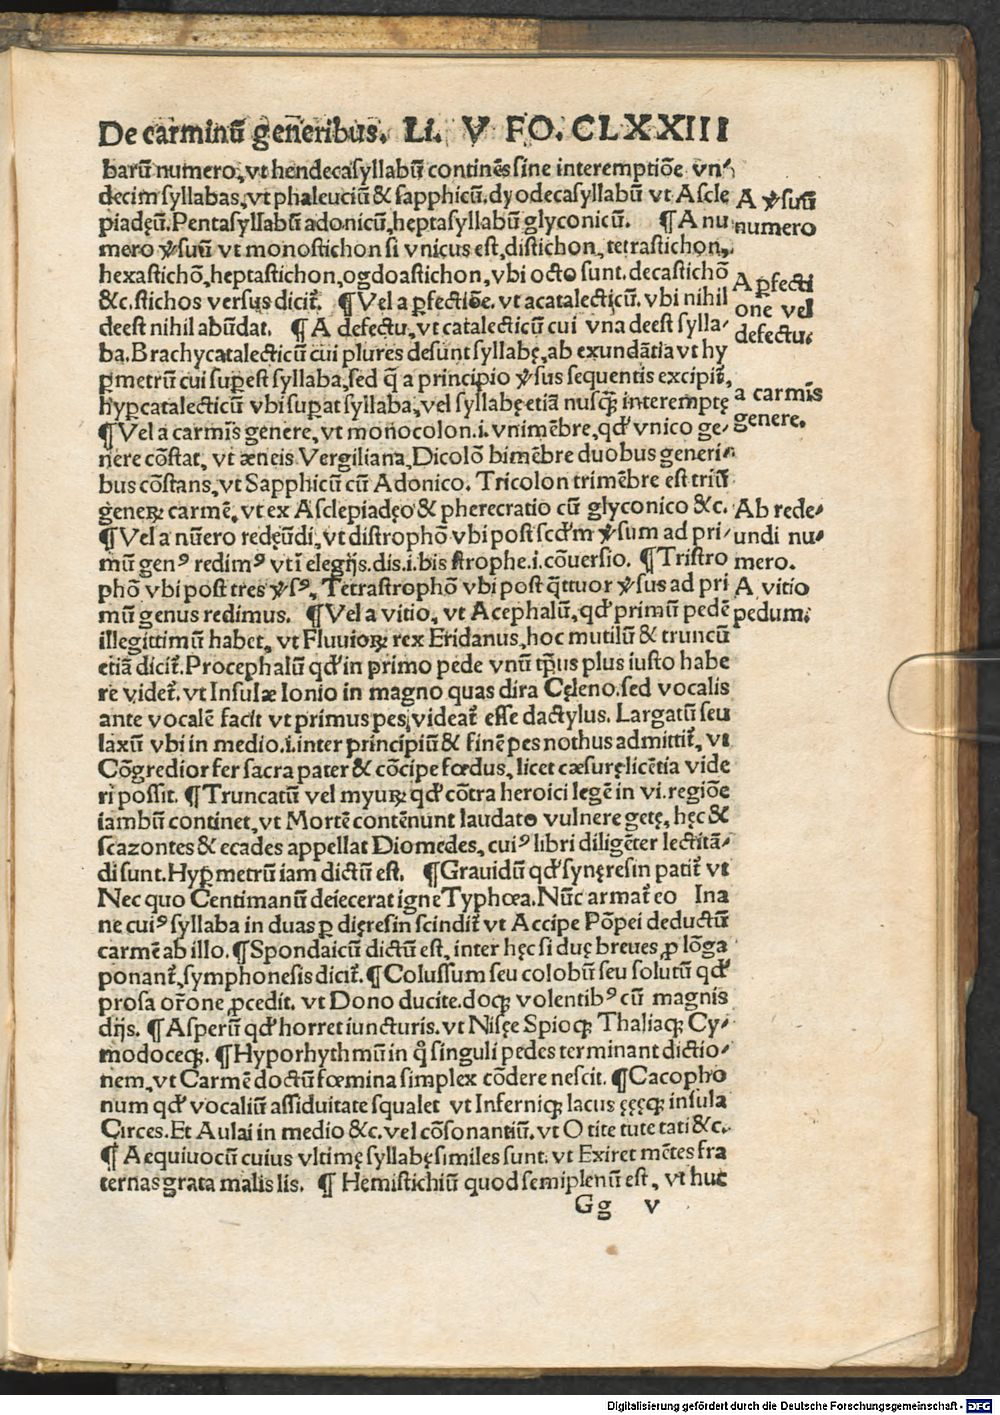 De carminū generibus. Li. V FO. CLXXIII
barū numero, vt hendecasyllabū continēs sine interemptiōe vn⸗
decim syllabas, vt phaleuciū & sapphicū. dyodecasyllabū vt Ascle
piadęū. Pentasyllabū adonicū, heptasyllabū glyconicū. ¶ A nu
mero ꝟsuū vt monostichon si vnicus est, distichon, tetrastichon,
hexastichō, heptastichon, ogdoastichon, vbi octo sunt. decastichō
&c. stichos versus dicit᷑. ¶ Vel a ꝑfectiōe. vt acatalecticū. vbi nihil
deest nihil abūdat. ¶ A defectu, vt catalecticū cui vna deest sylla⸗
ba. Brachycatalecticū cui plures desunt syllabę, ab exundātia vt hy
ꝑmetrū cui suꝑest syllaba, sed q̄ a principio ꝟsus sequentis excipit᷑,
hyꝑcatalecticū vbi suꝑat syllaba, vel syllabę etiā nusꝗ̄ interemptę
¶ Vel a carmīs genere, vt monocolon. i. vnimēbre, qđ vnico ge⸗
nere cōstat, vt æneis Vergiliana, Dicolō bimēbre duobus generi⸗
bus cōstans, vt Sapphicū cū Adonico. Tricolon trimēbre est triū
geneꝝ carmē, vt ex Asclepiadęo & pherecratio cū glyconico &c.
¶ Vel a nūero redęūdi, vt distrophō vbi post scđm ꝟsum ad pri⸗
mū genꝰ redimꝰ vti elegijs. dis. i. bis strophe. i. cōuersio. ¶ Tristro
phō vbi post tres ꝟsꝰ, Tetrastrophō vbi post q̄ttuor ꝟsus ad pri
mū genus redimus. ¶ Vel a vitio, vt Acephalū, qđ primū pedē
illegittimū habet, vt Fluuioꝝ rex Eridanus, hoc mutilū & truncū
etiā dicit᷑. Procephalū qđ in primo pede vnū tp̄us plus iusto habe
re videt᷑. vt Insulæ Ionio in magno quas dira Cęleno. sed vocalis
ante vocalē facit vt primus pes videat᷑ esse dactylus. Largatū seu
laxū vbi in medio. i. inter principiū & finē pes nothus admittit᷑, vt
Cōgredior fer sacra pater & cōcipe fœdus, licet cæsurę licētia vide
ri possit. ¶ Truncatū vel myuꝝ qđ cōtra heroici legē in vi. regiōe
iambū continet, vt Mortē contēnunt laudato vulnere getę, hęc &
scazontes & ecades appellat Diomedes, cuiꝰ libri diligēter lectitā⸗
di sunt. Hyꝑmetrū iam dictū est. ¶ Grauidū qđ synęresin patit᷑ vt
Nec quo Centimanū deiecerat igne Typhœa. Nūc armat᷑ eo Ina
ne cuiꝰ syllaba in duas ꝑ dięresin scindit᷑ vt Accipe Pōpei deductū
carmē ab illo. ¶ Spondaicū dictū est, inter hęc si duę breues ꝓ lōga
ponant᷑, symphonesis dicit᷑. ¶ Colussum seu colobū seu solutū qđ
prosa or̄one ꝓcedit. vt Dono ducite. doqꝫ volentibꝰ cū magnis
dijs. ¶ Asperū qđ horret iuncturis. vt Nisęe Spioqꝫ Thaliaqꝫ Cy⸗
modoceqꝫ. ¶ Hyporhythmū in q̊ singuli pedes terminant dictio⸗
nem, vt Carmē doctū fœmina simplex cōdere nescit. ¶ Cacopho
num qđ vocaliū assiduitate squalet vt Inferniqꝫ lacus ęęęqꝫ insula
Circes. Et Aulai in medio &c. vel cōsonantiū. vt O tite tute tati &c.
¶ Aequiuocū cuius vltimę syllabę similes sunt. vt Exiret mētes fra
ternas grata malis lis. ¶ Hemistichiū quod semiplenū est, vt huc
Gg v
A ꝟsuū
numero
A ꝑfecti
one vel
defectu.
a carmīs
genere.
Ab rede⸗
undi nu⸗
mero.
A vitio
pedum.
Digitalisierung gefördert durch die Deutsche Forschungsgemeinschaft - DFG